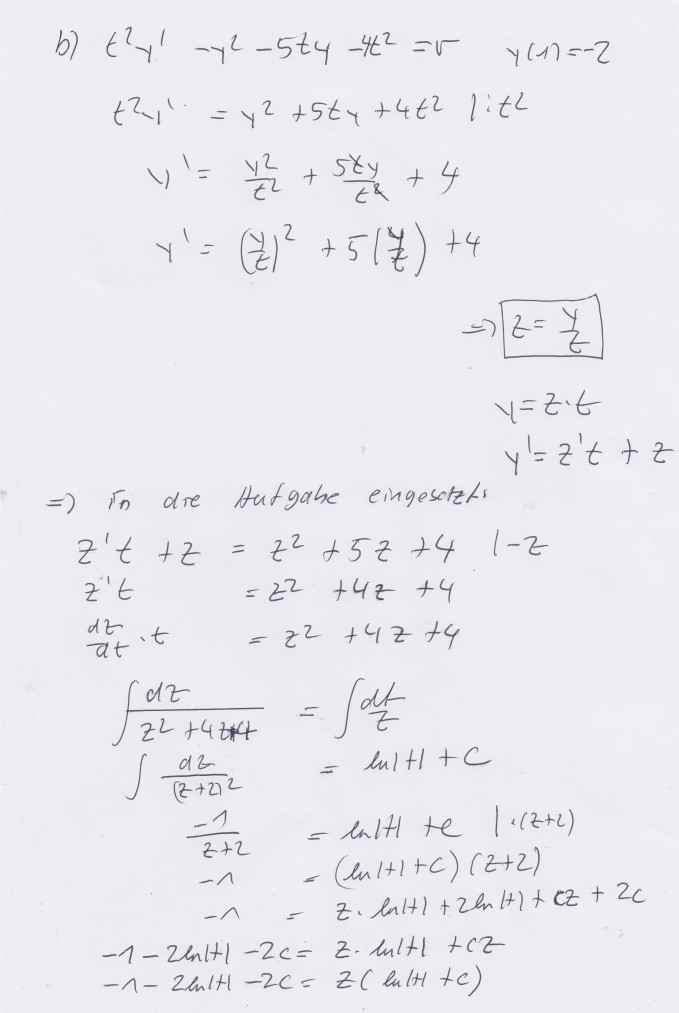 b) t²y' - y² - 5ty - 4t² = 0 y(1) = -2
t²y' = y² + 5ty + 4t² |:t²
y' = y²/t² + 5ty/t² + 4
y' = (y/t)² + 5(y/t) + 4
=> z = y/t
y = z·t
y' = z't + z
=> in die Aufgabe eingesetzt:
z't + z = z² + 5z + 4 |-z
z't = z² + 4z + 4
dz/dt · t = z² + 4z + 4
∫ dz/(z² + 4z + 4) = ∫ dt/t
∫ dz/(z+2)² = ln|t| + C
-1/(z+2) = ln|t| + c |·(z+2)
-1 = (ln|t| + c)(z+2)
-1 = z·ln|t| + 2ln|t| + cz + 2c
-1 - 2ln|t| - 2c = z·ln|t| + cz
-1 - 2ln|t| - 2c = z(ln|t| + c)